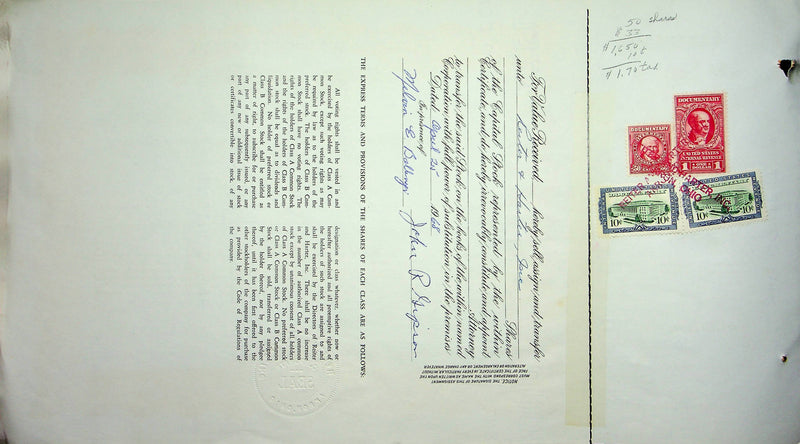 50 shares
$ 33
$1,650
$1.70 tax
DOCUMENTARY
DOCUMENTARY
UNITED STATES
INTERNAL REVENUE
1
10¢
10¢
For Value Received hereby sell, assign and transfer
unto
Shares
of the Capital Stock represented by the within
Certificate, and do hereby irrevocably constitute and appoint
Attorney
to transfer the said Stock on the books of the within named
Corporation with full power of substitution in the premises.
Dated April 25 19
In presence of
John R
NOTICE, THE SIGNATURE OF THIS ASSIGNMENT
MUST CORRESPOND WITH THE NAME AS WRITTEN UPON THE
FACE OF THE CERTIFICATE, IN EVERY PARTICULAR, WITHOUT
ALTERATION OR ENLARGEMENT, OR ANY CHANGE WHATEVER.
THE EXPRESS TERMS AND PROVISIONS OF THE SHARES OF EACH CLASS ARE AS FOLLOWS:
All voting rights shall be vested in and
be exercised by the holders of Class A Com-
mon Stock, except such voting rights as may
be required by law as to the holders of the
preferred stock. The holders of Class B Com-
mon Stock shall have no voting rights. The
rights of the holders of Class A Common Stock
and the rights of the holders of Class B Com-
mon stock shall be equal as to dividend and
liquidation. No holder of preferred stock or
Class B Common Stock shall be entitled as
a matter of right to subscribe for or purchase
any part of any subsequently issued, or any
part of any new or additional issue of stock
or certificates convertible into stock of any
designation or class whatever, whether now or
hereafter authorized and all preemptive rights of
the holders of such stock are assigned to and
shall be exercised by the Directors of Reiter
and Harter, Inc. There shall be no increase
in the number of authorized Class A common
stock except by unanimous consent of all holders
of Class A Common Stock. No preferred stock
or Class A Common Stock or Class B Common
Stock shall be sold, transferred or assigned
by the holder thereof, nor by any pledgee
thereof, until it has been first offered to the
other stockholders of the company for purchase
as provided by the Code of Regulations of
the company.
SEAL